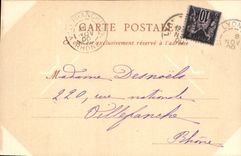 CARTE POSTALE
exclusivement réservé à l'adresse
10
Madame Desnoëls
220, rue nationale
Villefranche
Rhône